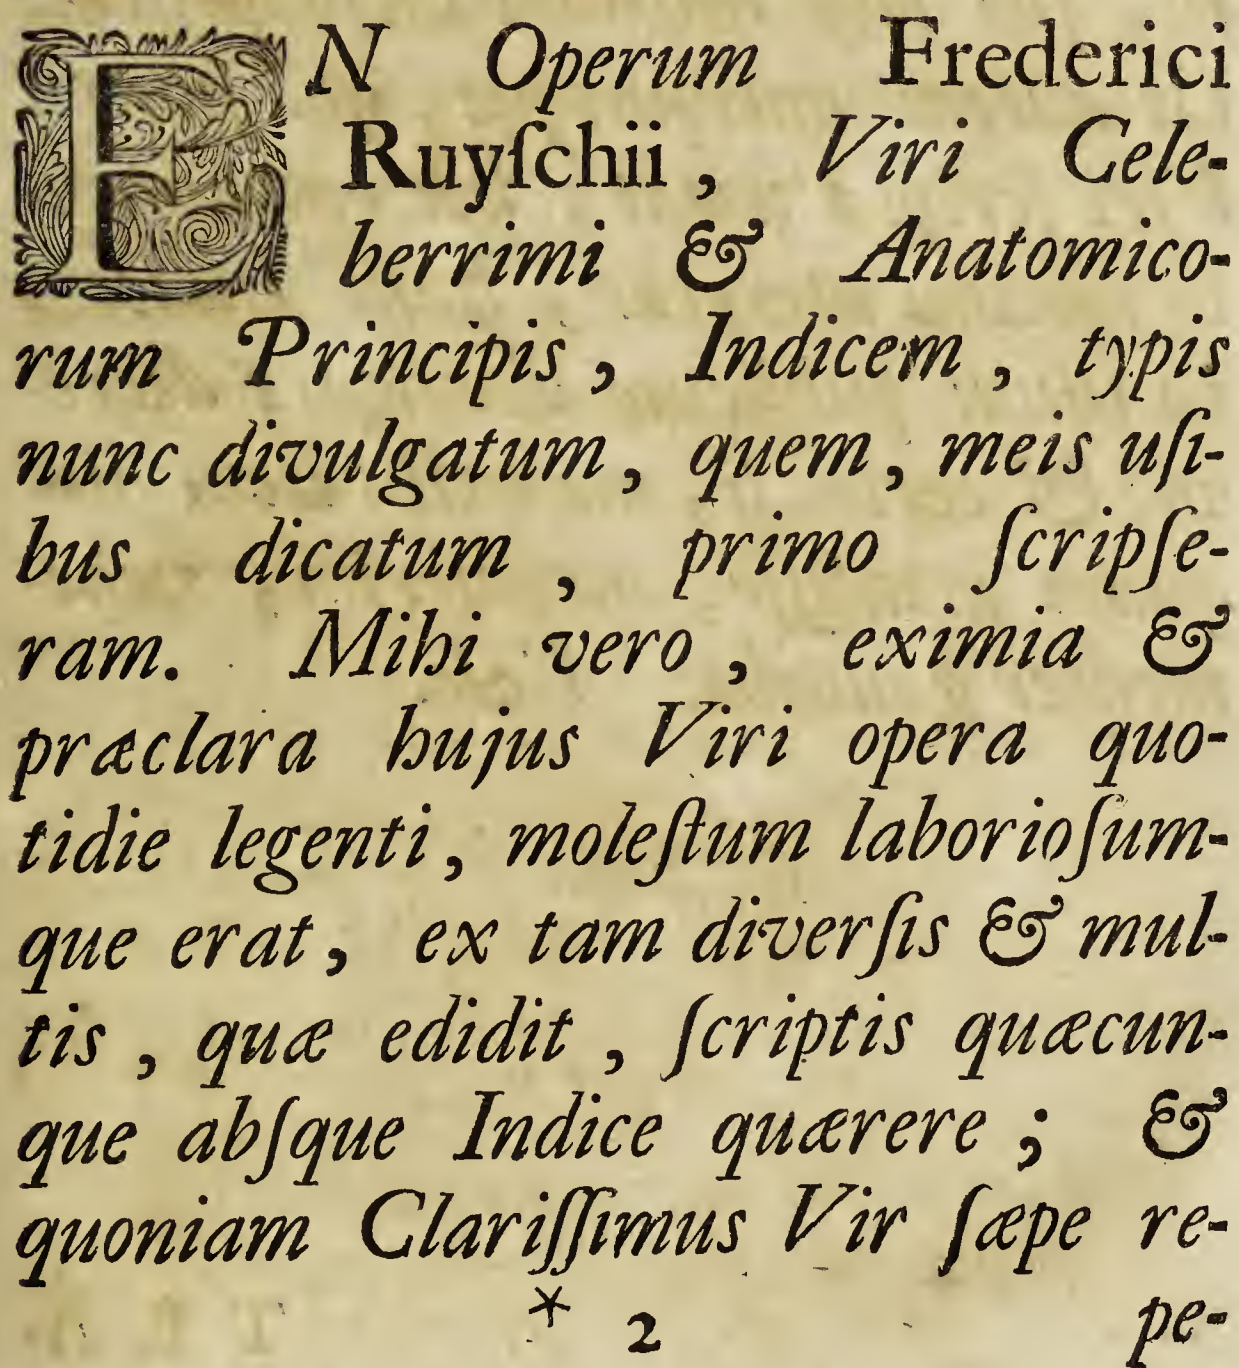 EN Operum Frederici
Ruyſchii, Viri Cele-
berrimi & Anatomico-
rum Principis, Indicem, typis
nunc divulgatum, quem, meis uſi-
bus dicatum, primo ſcripſe-
ram. Mihi vero, eximia &
præclara hujus Viri opera quo-
tidie legenti, moleſtum laborioſum-
que erat, ex tam diverſis & mul-
tis, quæ edidit, ſcriptis quæcun-
que abſque Indice quærere; &
quoniam Clariſſimus Vir ſæpe re-
* 2 pe-